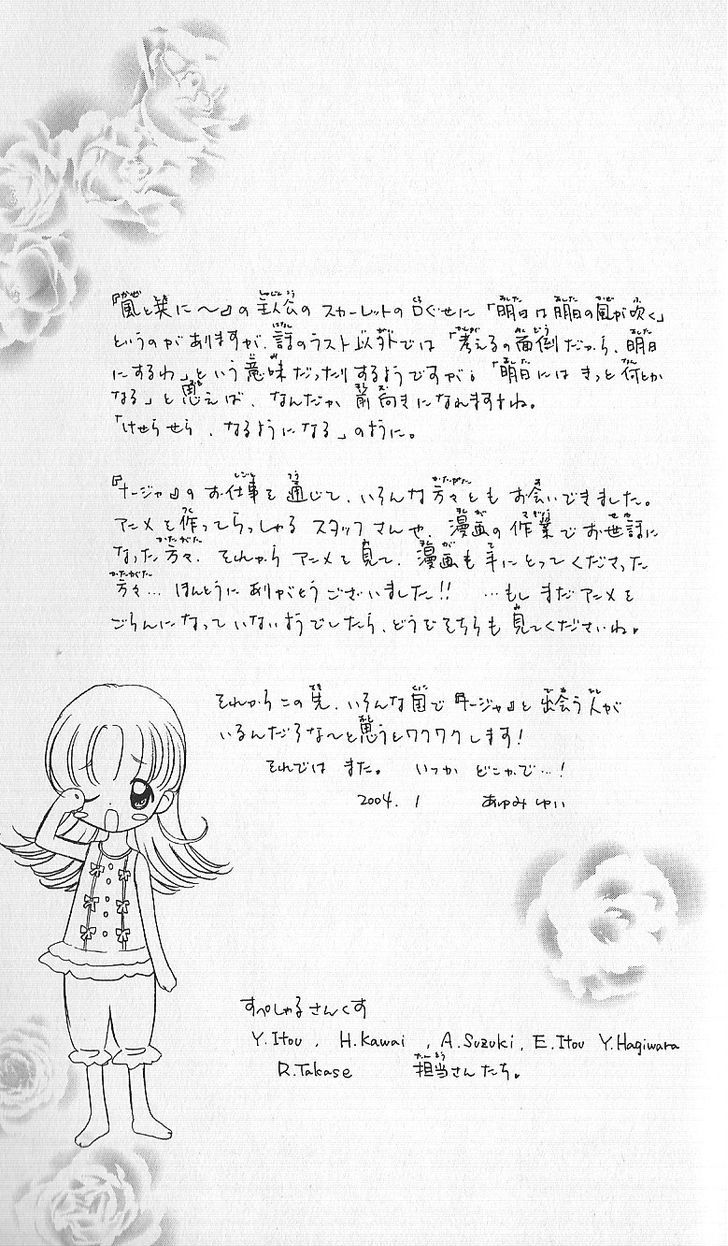 『風と共に〜』の主人公のスカーレットの口ぐせに「明日は明日の風が吹く」
というのがありますが、話のラスト以外では「考えるの面倒だから、明日
にするわ」という意味だったりするようですが；「明日にはきっと何とか
なる」と思えば、なんだか前向きになれますよね。
「けせらせら、なるようになる」のように。
『ナージャ』のお仕事を通じて、いろんな方々ともお会いできました。
アニメを作ってらっしゃるスタッフさんや、漫画の作業でお世話に
なった方々、それからアニメを見て、漫画も手にとってくださった
方々…ほんとうにありがとうございました!! …もしまだアニメを
ごらんになっていないようでしたら、どうぞそちらも見てくださいね。
それからこの先、いろんな国で『ナージャ』と出会う人が
いるんだろうな〜と思うとワクワクします！
それでは また。 いつか どこかで…！
2004. 1 あゆみゆい
すぺしゃるさんくす
Y.Itou, H.Kawai, A.Suzuki, E.Itou Y.Hagiwara
R.Takase 担当さんたち。